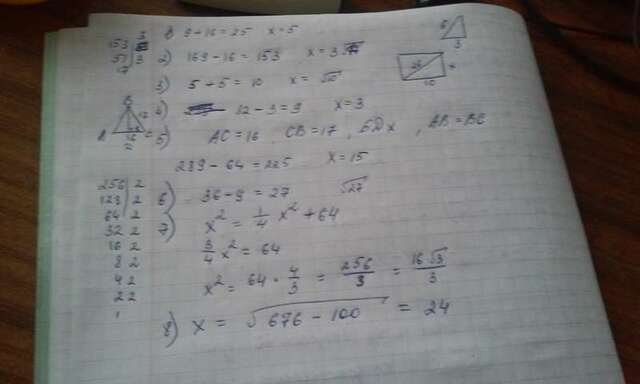 1) 9+16=25 x=5
153 3
51 3
17
2) 169-16=153 x=3√17
3) 5+5=10 x=√10
4) 12-3=9 x=3
5) AC=16 CB=17, BD x, AB=BC
289-64=225 x=15
6) 36-9=27 √27
7) x² = 1/4 x² + 64
3/4 x² = 64
x² = 64 · 4/3 = 256/3 = 16√3/3
8) x = √676-100 = 24
256 2
128 2
64 2
32 2
16 2
8 2
4 2
2 2
1
6
3
26
x
10
B
A
C
17
16
2